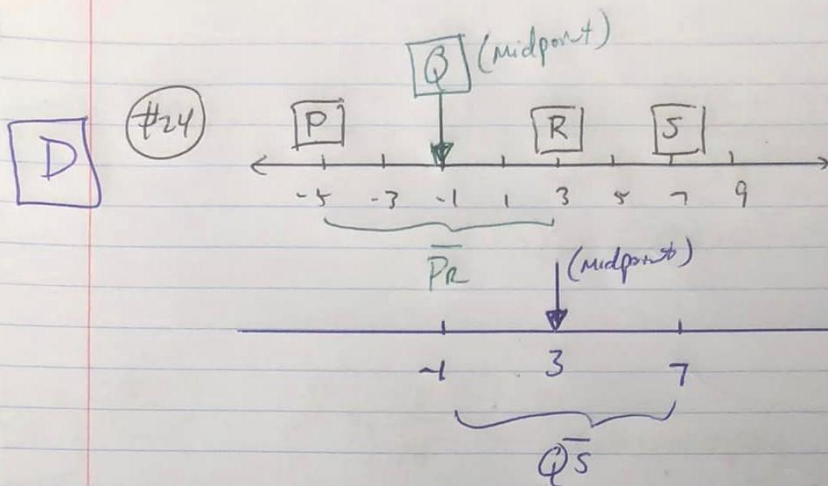 Q (midpoint)
D #24 P R S
-5 -3 -1 1 3 5 7 9
PR (midpoint)
-1 3 7
QS